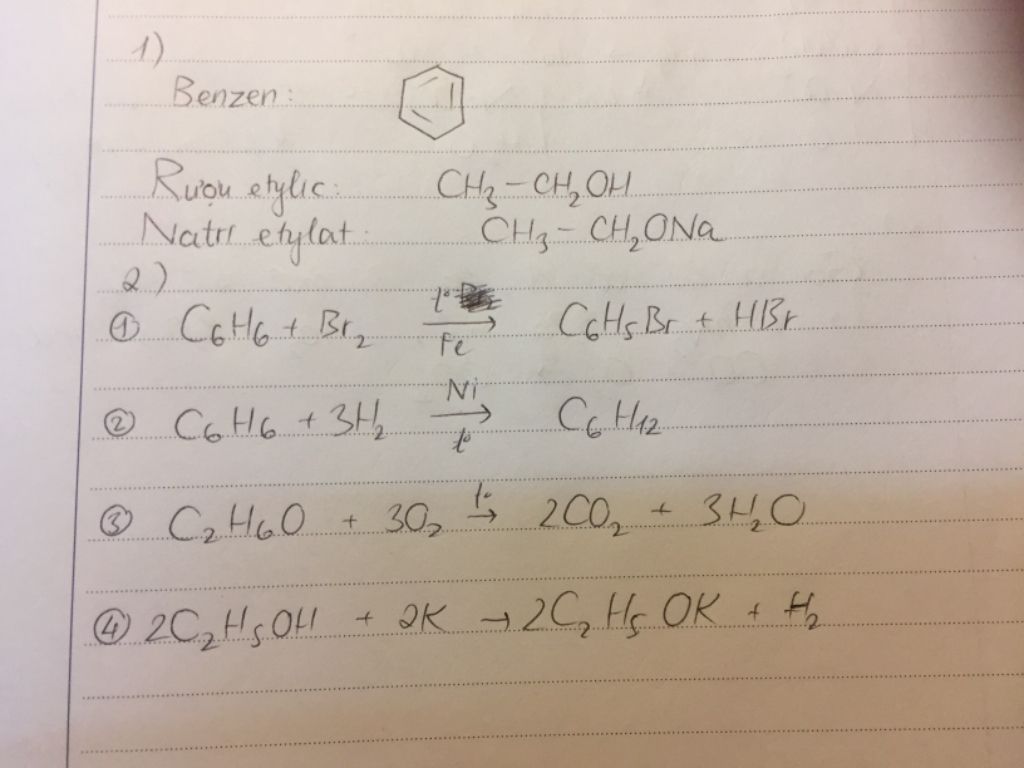 1)
Benzen:
Rượu etylic: CH₃ – CH₂OH
Natri etylat: CH₃ – CH₂ONa
2)
① C₆H₆ + Br₂ →(t°, Fe) C₆H₅Br + HBr
② C₆H₆ + 3H₂ →(Ni, t°) C₆H₁₂
③ C₂H₆O + 3O₂ →(t°) 2CO₂ + 3H₂O
④ 2C₂H₅OH + 2K → 2C₂H₅OK + H₂